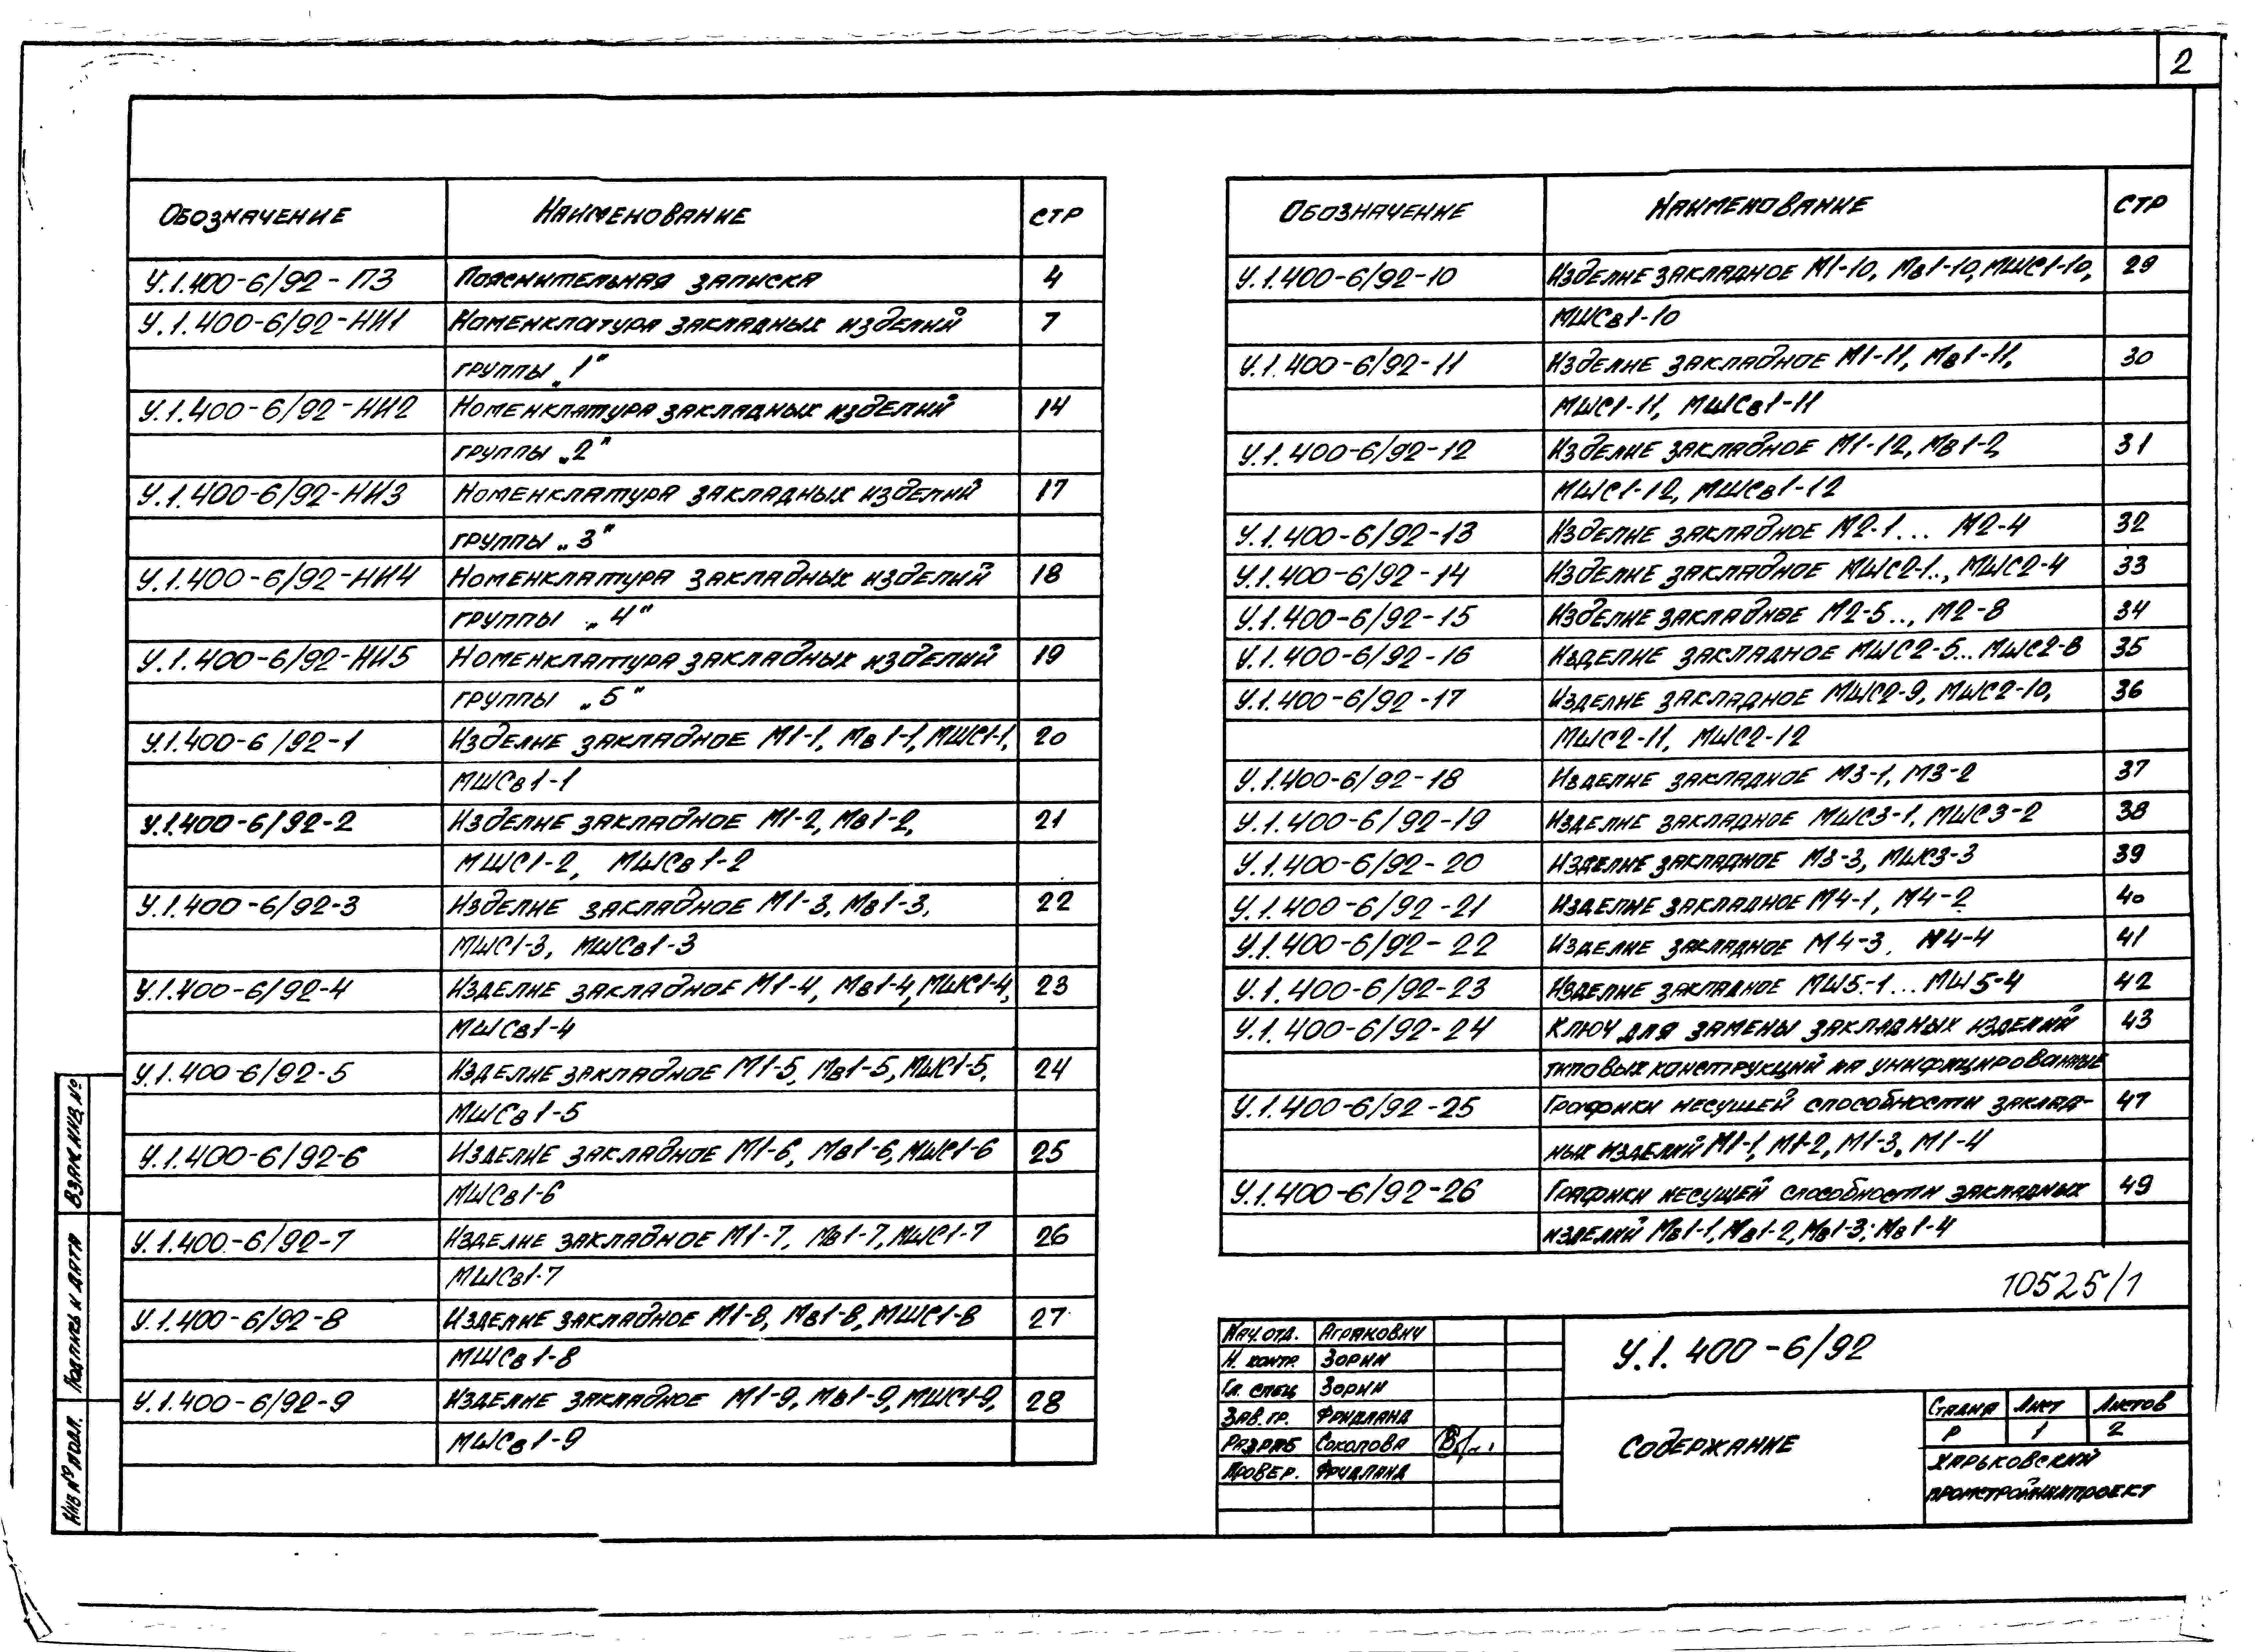 2
Обозначение Наименование стр
У.1.400-6/92-ПЗ Пояснительная записка 4
У.1.400-6/92-НИ1 Номенклатура закладных изделий 7
группы „1"
У.1.400-6/92-НИ2 Номенклатура закладных изделий 14
группы „2"
У.1.400-6/92-НИ3 Номенклатура закладных изделий 17
группы „3"
У.1.400-6/92-НИ4 Номенклатура закладных изделий 18
группы „4"
У.1.400-6/92-НИ5 Номенклатура закладных изделий 19
группы „5"
У.1.400-6/92-1 Изделие закладное М1-1, Мв1-1, МШС1-1, 20
МШСв1-1
У.1.400-6/92-2 Изделие закладное М1-2, Мв1-2, 21
МШС1-2, МШСв1-2
У.1.400-6/92-3 Изделие закладное М1-3, Мв1-3, 22
МШС1-3, МШСв1-3
У.1.400-6/92-4 Изделие закладное М1-4, Мв1-4, МШС1-4, 23
МШСв1-4
У.1.400-6/92-5 Изделие закладное М1-5, Мв1-5, МШС1-5, 24
МШСв1-5
У.1.400-6/92-6 Изделие закладное М1-6, Мв1-6, МШС1-6 25
МШСв1-6
У.1.400-6/92-7 Изделие закладное М1-7, Мв1-7, МШС1-7 26
МШСв1-7
У.1.400-6/92-8 Изделие закладное М1-8, Мв1-8, МШС1-8 27
МШСв1-8
У.1.400-6/92-9 Изделие закладное М1-9, Мв1-9, МШС1-9, 28
МШСв1-9
Обозначение Наименование стр
У.1.400-6/92-10 Изделие закладное М1-10, Мв1-10, МШС1-10, 29
МШСв1-10
У.1.400-6/92-11 Изделие закладное М1-11, Мв1-11, 30
МШС1-11, МШСв1-11
У.1.400-6/92-12 Изделие закладное М1-12, Мв1-2, 31
МШС1-12, МШСв1-12
У.1.400-6/92-13 Изделие закладное М2-1... М2-4 32
У.1.400-6/92-14 Изделие закладное МШС2-1.., МШС2-4 33
У.1.400-6/92-15 Изделие закладное М2-5.., М2-8 34
У.1.400-6/92-16 Изделие закладное МШС2-5... МШС2-8 35
У.1.400-6/92-17 Изделие закладное МШС2-9, МШС2-10, 36
МШС2-11, МШС2-12
У.1.400-6/92-18 Изделие закладное М3-1, М3-2 37
У.1.400-6/92-19 Изделие закладное МШС3-1, МШС3-2 38
У.1.400-6/92-20 Изделие закладное М3-3, МШС3-3 39
У.1.400-6/92-21 Изделие закладное М4-1, М4-2 40
У.1.400-6/92-22 Изделие закладное М4-3, М4-4 41
У.1.400-6/92-23 Изделие закладное МШ5-1... МШ5-4 42
У.1.400-6/92-24 Ключ для замены закладных изделий 43
типовых конструкций на унифицированные
У.1.400-6/92-25 Графики несущей способности заклад- 47
ных изделий М1-1, М1-2, М1-3, М1-4
У.1.400-6/92-26 Графики несущей способности закладных 49
изделий Мв1-1, Мв1-2, Мв1-3; Мв1-4
10525/1
Нач.отд. Агранович
Н. контр. Зорин
Гл. спец Зорин
Зав.гр. Фридланд
Разраб Соколова
Провер. Фридланд
У.1.400-6/92
Содержание
Стадия Лист Листов
Р 1 2
Харьковский
Промстройниипроект
Взам.инв.№
Подпись и дата
Инв.№ подл.